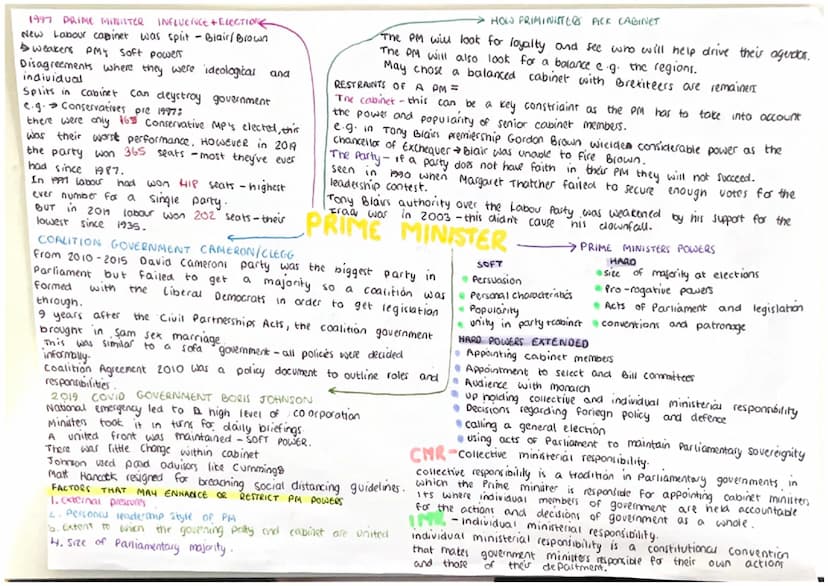 1997 PRIME MINISTER INFLUENCE + ELECTION
New Labour cabinet was split - Blair/Brown
↳ weakens PM's soft powers
Disagreements where they were ideological and
individual
Splits in cabinet can deystroy government
e.g. → Conservatives pre 1997:
there were only 165 Conservative MP's elected, this
was their worst performance. HOWEVER in 2019
the party won 365 seats - most they've ever
had since 1987.
In 1997 labour had won 418 seats - highest
ever number for a single party.
BUT in 2019 labour won 202 seats - their
lowest since 1935.
HOW PRIMINISTERS PICK CABINET
The PM will look for loyalty and see who will help drive their agendas.
The PM will also look for a balance e.g. the regions.
May chose a balanced cabinet with Brexiteers are remainers
RESTRAINTS OF A PM =
The cabinet - this can be a key constraint as the PM has to take into account
the power and popularity of senior cabinet members.
e.g. in Tony Blairs premiership Gordon Brown wielded considerable power as the
chancellor of Exchequer → Blair was unable to fire Brown.
The Party - if a party does not have faith in their PM they will not succeed.
seen in 1990 when Margaret Thatcher failed to secure enough votes for the
leadership contest.
Tony Blairs authority over the Labour Party was weakened by his support for the
Iraq war in 2003 - this didnt cause his downfall.
PRIME MINISTER
COALITION GOVERNMENT CAMERON/CLEGG
From 2010-2015 David Camerons party was the biggest party in
Parliament but failed to get a majority so a coalition was
formed with the Liberal Democrats in order to get legislation
through.
9 years after the Civil Partnerships Acts, the coalition government
brought in sam sex marriage.
This was similar to a sofa government - all policies were decided
informally.
Coalition Agreement 2010 was a policy document to outline roles and
responsibilities.
2019 COVID GOVERNMENT BORIS JOHNSON
National emergency led to a high level of coorporation
Ministers took it in turns for daily briefings.
A united front was maintained - SOFT POWER.
There was little change within cabinet
Johnson used paid advisors like Cummings
Matt Hancock resigned for breaching social distancing guidelines.
FACTORS THAT MAY ENHANCE OR RESTRICT PM POWERS
1. External pressures
2. Personal leadership style of PM
3. Extent to when the governing party and cabinet are united
4. Size of Parliamentary majority.
PRIME MINISTERS POWERS
SOFT
• Persuasion
• Personal characteristics
• Popularity
• unity in party + cabinet
HARD
• size of majority at elections
• Pro-rogative powers
• Acts of Parliament and legislation
• conventions and patronage
HARD POWERS EXTENDED
• Appointing cabinet members
• Appointment to select and Bill committees
• Audience with monarch
• Up holding collective and individual ministerial responsibility
• Decisions regarding foriegn policy and defence
• calling a general election
• using acts of Parliament to maintain Parliamentary sovereignty
CMR - Collective ministerial responsibility.
collective responsibility is a tradition in Parliamentary governments in
which the Prime minister is responsible for appointing cabinet ministers
Its where individual members of government are held accountable
for the actions and decisions of government as a whole.
IMR - Individual ministerial responsibility.
Individual ministerial responsibility is a constitutional convention
that makes government ministers responsible for their own actions
and those of their department.